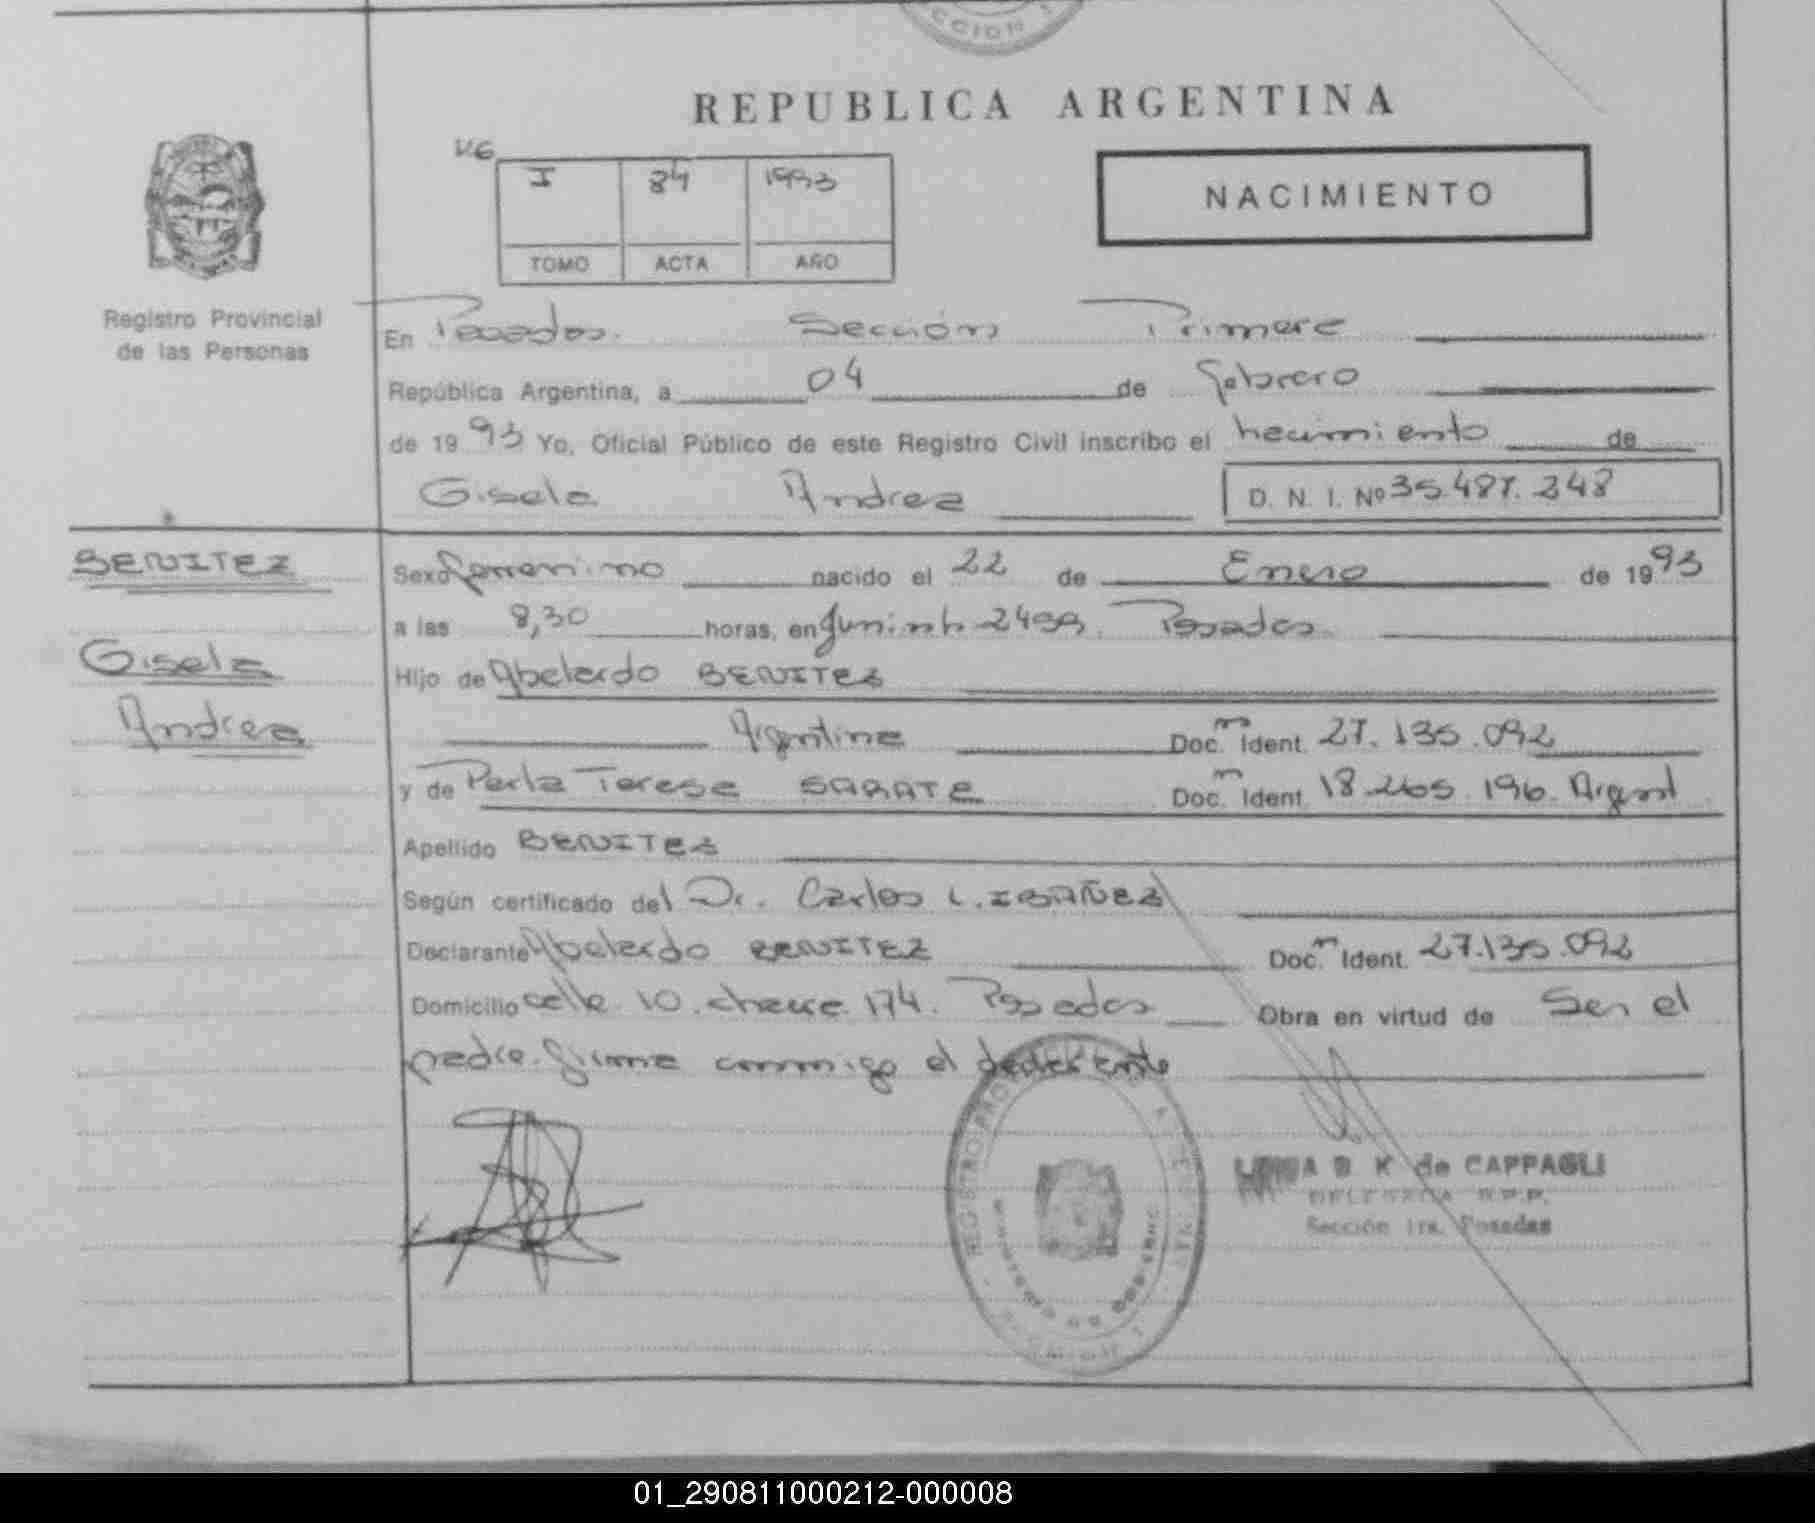 CCION 1
REPUBLICA ARGENTINA
I 84 1993
TOMO ACTA AÑO
NACIMIENTO
Registro Provincial
de las Personas
En Posadas. Sección Primera
República Argentina, a 04 de febrero
de 1993 Yo, Oficial Público de este Registro Civil inscribo el nacimiento de
Gisela Andrea D. N. I. Nº 35.487.248
BENITEZ
Gisela
Andrea
Sexo femenino nacido el 22 de Enero de 1993
a las 8,30 horas, en Junin 2499. Posadas.
Hijo de Abelardo BENITEZ
Argentina Doc. Ident. 27.135.092
y de Perla Teresa SARATE Doc. Ident. 18.265.196. Argent.
Apellido BENITEZ
Según certificado del Dr. Carlos L. IBAÑEZ
Declarante Abelardo BENITEZ Doc. Ident. 27.135.092
Domicilio calle 10. chacra 174. Posadas Obra en virtud de Ser el
padre. Firma conmigo el declarante
REGISTRO PROV
B. K. de CAPPAGLI
DELEGADA R.P.P.
Sección 1ra. Posadas
01_290811000212-000008